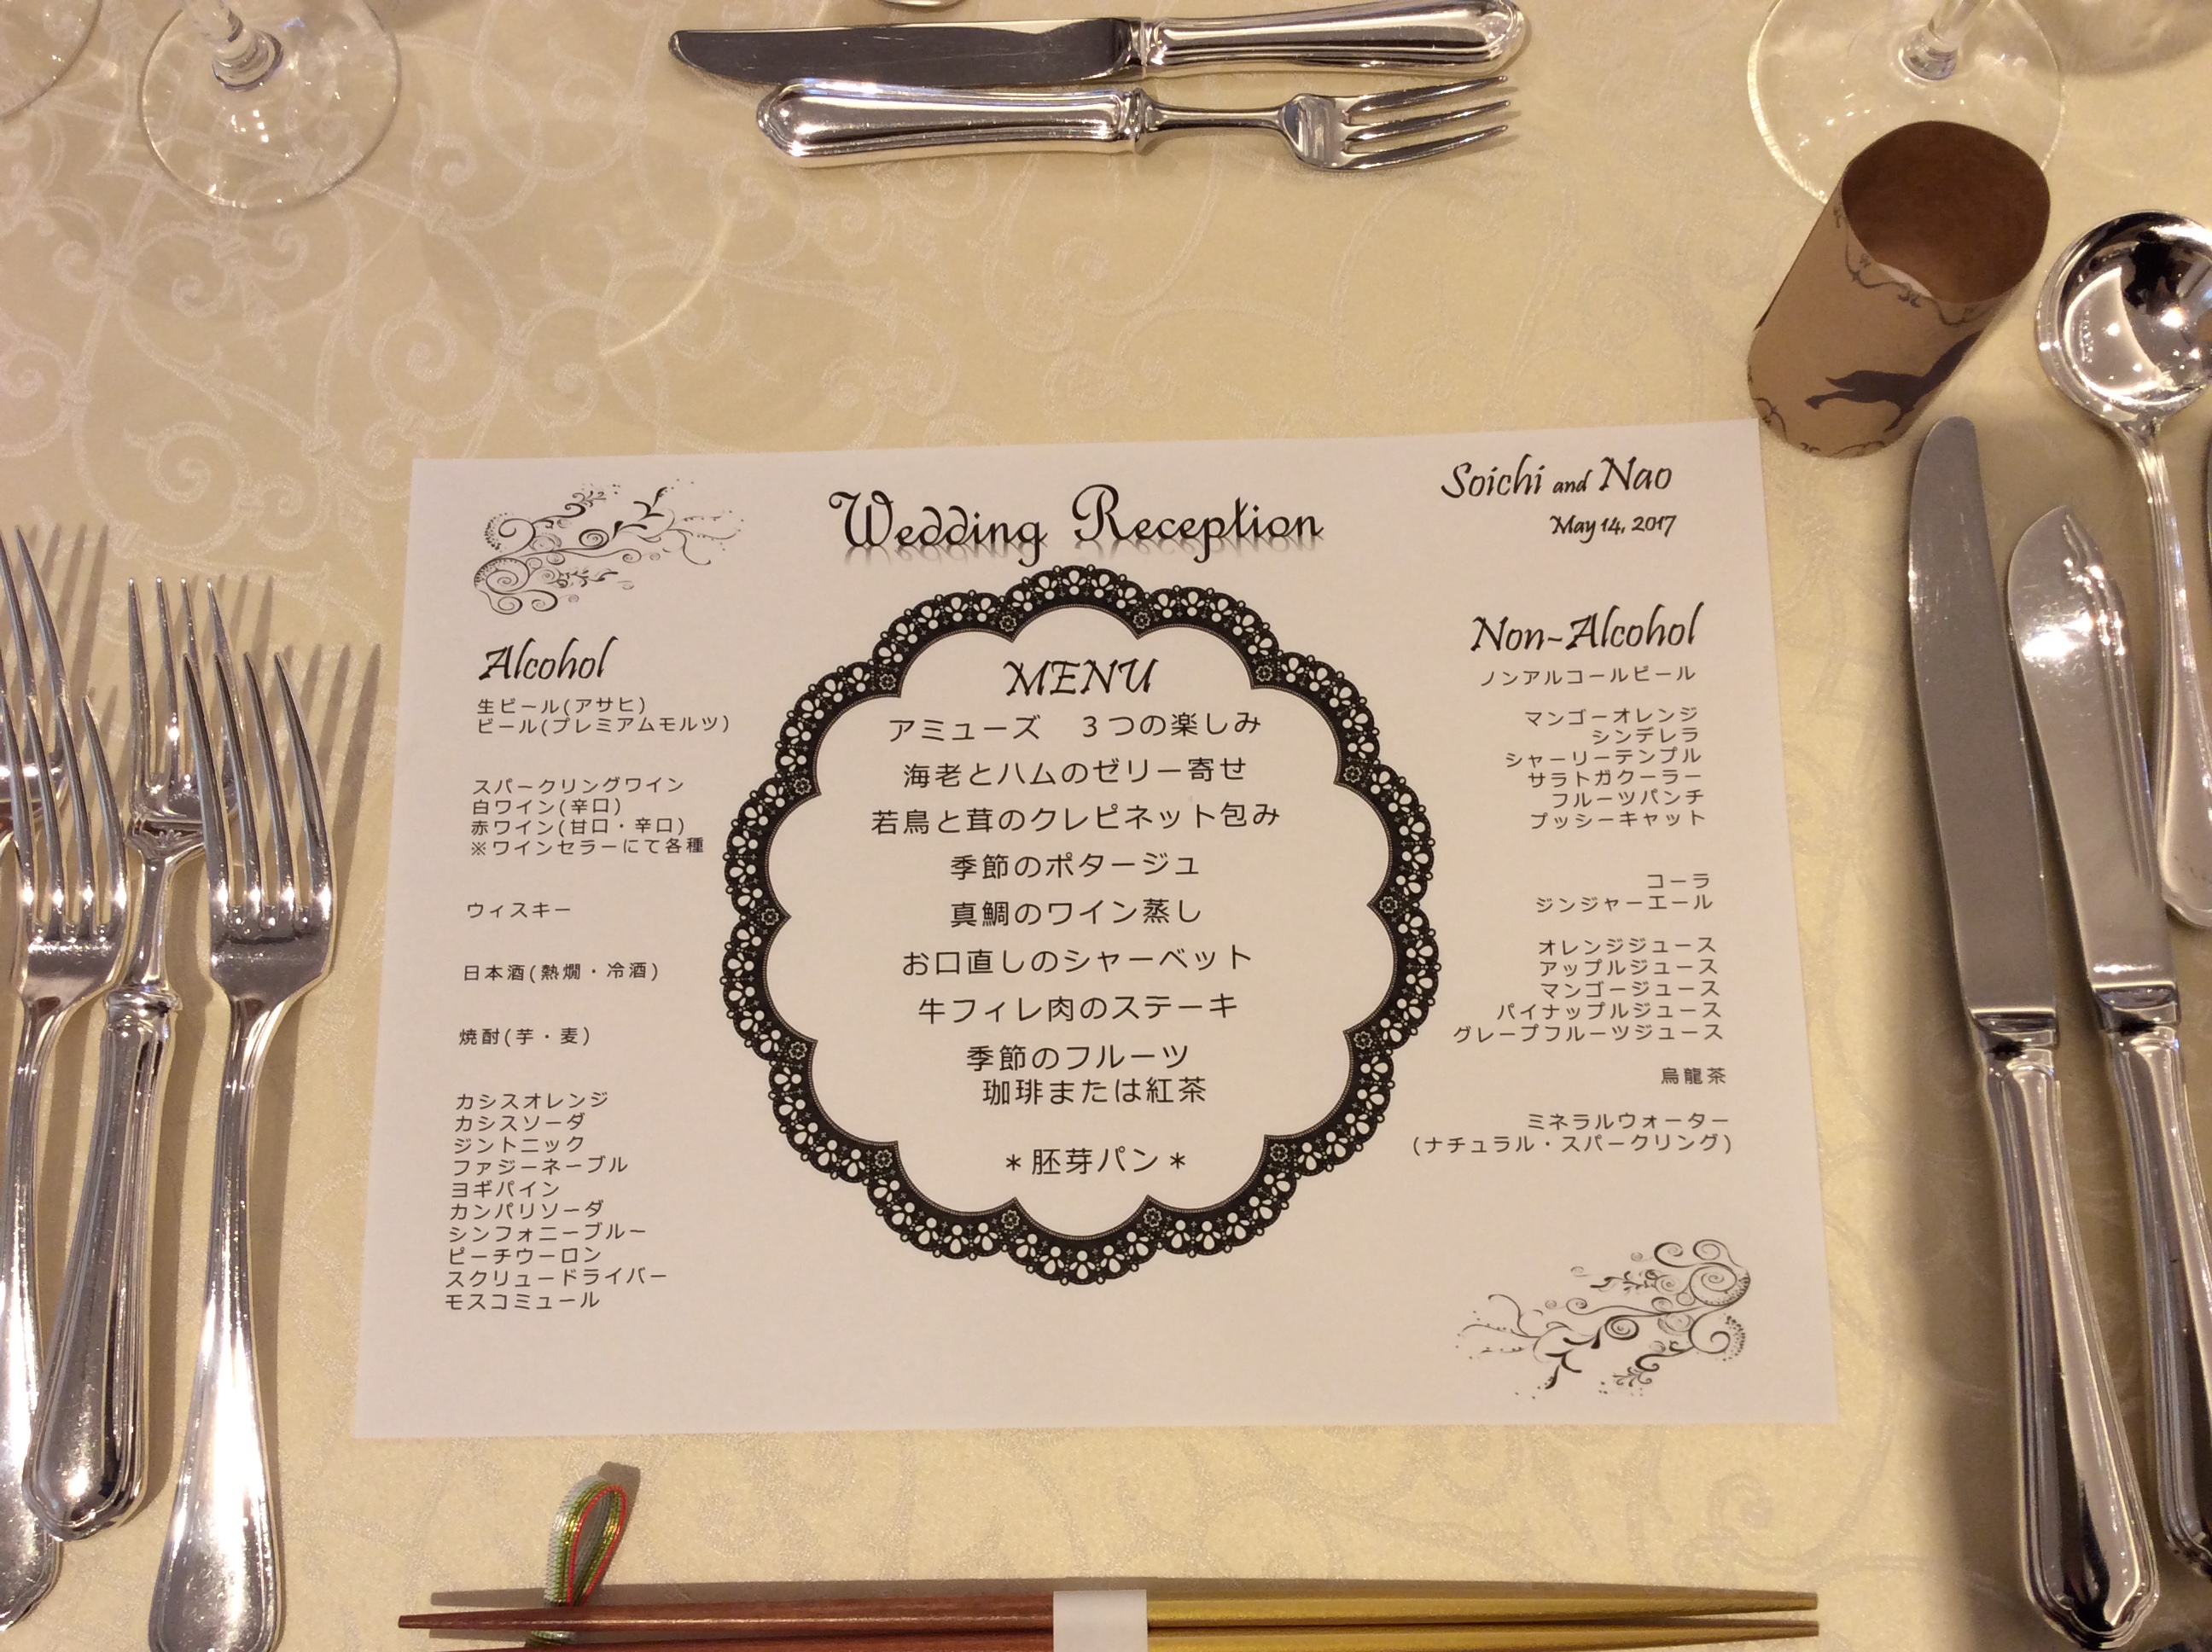 Wedding Reception
Soichi and Nao
May 14, 2017
Alcohol
生ビール(アサヒ)
ビール(プレミアムモルツ)
スパークリングワイン
白ワイン(辛口)
赤ワイン(甘口・辛口)
※ワインセラーにて各種
ウィスキー
日本酒(熱燗・冷酒)
焼酎(芋・麦)
カシスオレンジ
カシスソーダ
ジントニック
ファジーネーブル
ヨギパイン
カンパリソーダ
シンフォニーブルー
ピーチウーロン
スクリュードライバー
モスコミュール
MENU
アミューズ　３つの楽しみ
海老とハムのゼリー寄せ
若鳥と茸のクレピネット包み
季節のポタージュ
真鯛のワイン蒸し
お口直しのシャーベット
牛フィレ肉のステーキ
季節のフルーツ
珈琲または紅茶
＊胚芽パン＊
Non-Alcohol
ノンアルコールビール
マンゴーオレンジ
シンデレラ
シャーリーテンプル
サラトガクーラー
フルーツパンチ
プッシーキャット
コーラ
ジンジャーエール
オレンジジュース
アップルジュース
マンゴージュース
パイナップルジュース
グレープフルーツジュース
烏龍茶
ミネラルウォーター
(ナチュラル・スパークリング)